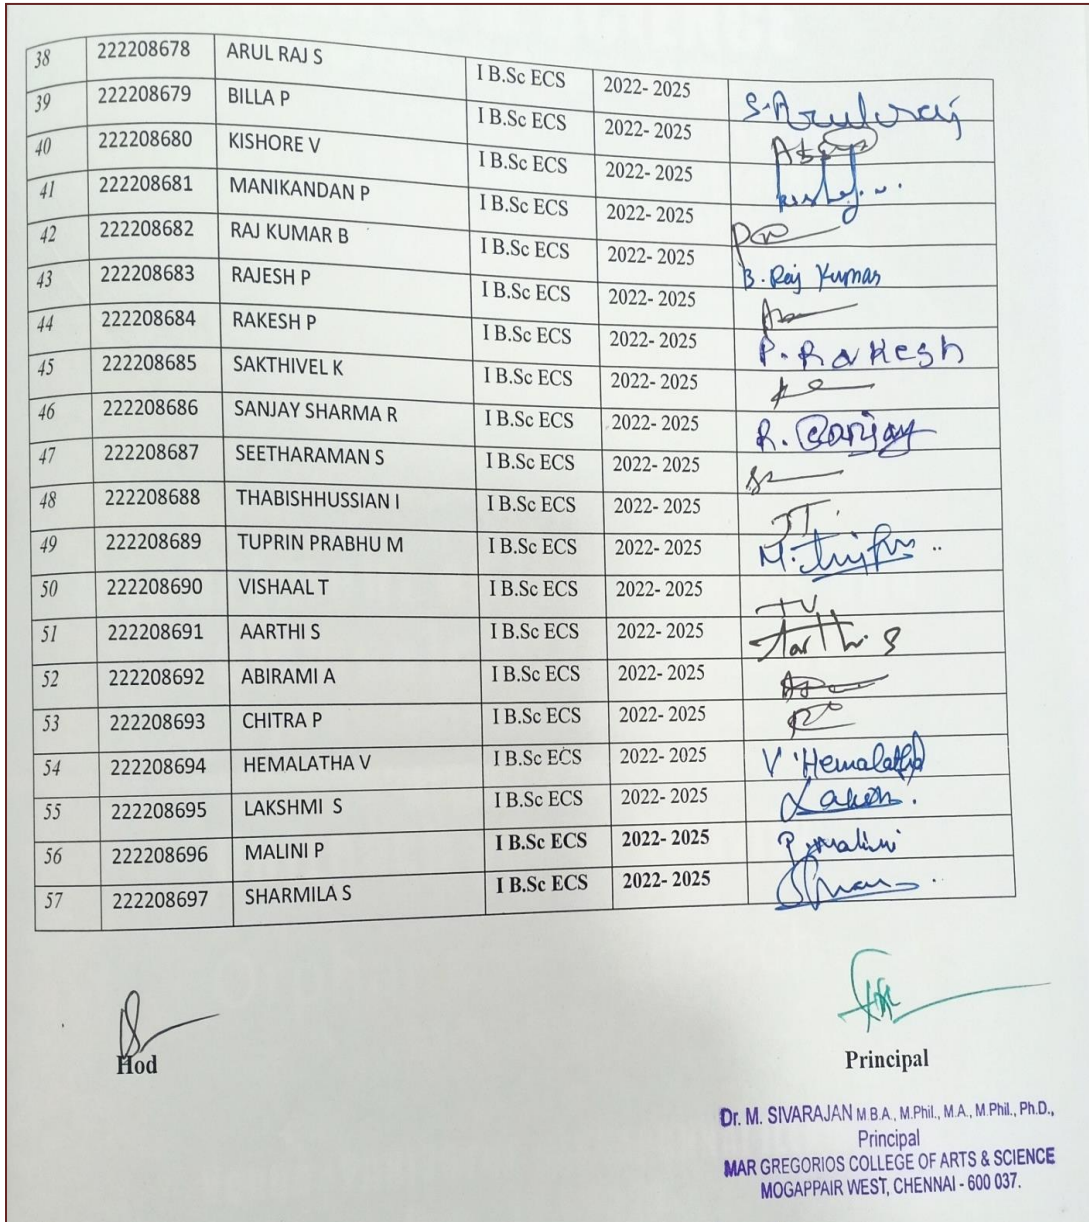 38 222208678 ARUL RAJ S I B.Sc ECS 2022- 2025 S.Arulraj
39 222208679 BILLA P I B.Sc ECS 2022- 2025
40 222208680 KISHORE V I B.Sc ECS 2022- 2025
41 222208681 MANIKANDAN P I B.Sc ECS 2022- 2025
42 222208682 RAJ KUMAR B I B.Sc ECS 2022- 2025 B. Raj Kumar
43 222208683 RAJESH P I B.Sc ECS 2022- 2025
44 222208684 RAKESH P I B.Sc ECS 2022- 2025 P. Rakesh
45 222208685 SAKTHIVEL K I B.Sc ECS 2022- 2025
46 222208686 SANJAY SHARMA R I B.Sc ECS 2022- 2025 R. Sanjay
47 222208687 SEETHARAMAN S I B.Sc ECS 2022- 2025
48 222208688 THABISHHUSSIAN I I B.Sc ECS 2022- 2025
49 222208689 TUPRIN PRABHU M I B.Sc ECS 2022- 2025
50 222208690 VISHAAL T I B.Sc ECS 2022- 2025
51 222208691 AARTHI S I B.Sc ECS 2022- 2025 Aarthi. S
52 222208692 ABIRAMI A I B.Sc ECS 2022- 2025
53 222208693 CHITRA P I B.Sc ECS 2022- 2025
54 222208694 HEMALATHA V I B.Sc ECS 2022- 2025 V Hemalatha
55 222208695 LAKSHMI S I B.Sc ECS 2022- 2025
56 222208696 MALINI P I B.Sc ECS 2022- 2025 P. malini
57 222208697 SHARMILA S I B.Sc ECS 2022- 2025
Hod
Principal
Dr. M. SIVARAJAN M B.A., M.Phil., M.A., M.Phil., Ph.D.,
Principal
MAR GREGORIOS COLLEGE OF ARTS & SCIENCE
MOGAPPAIR WEST, CHENNAI - 600 037.